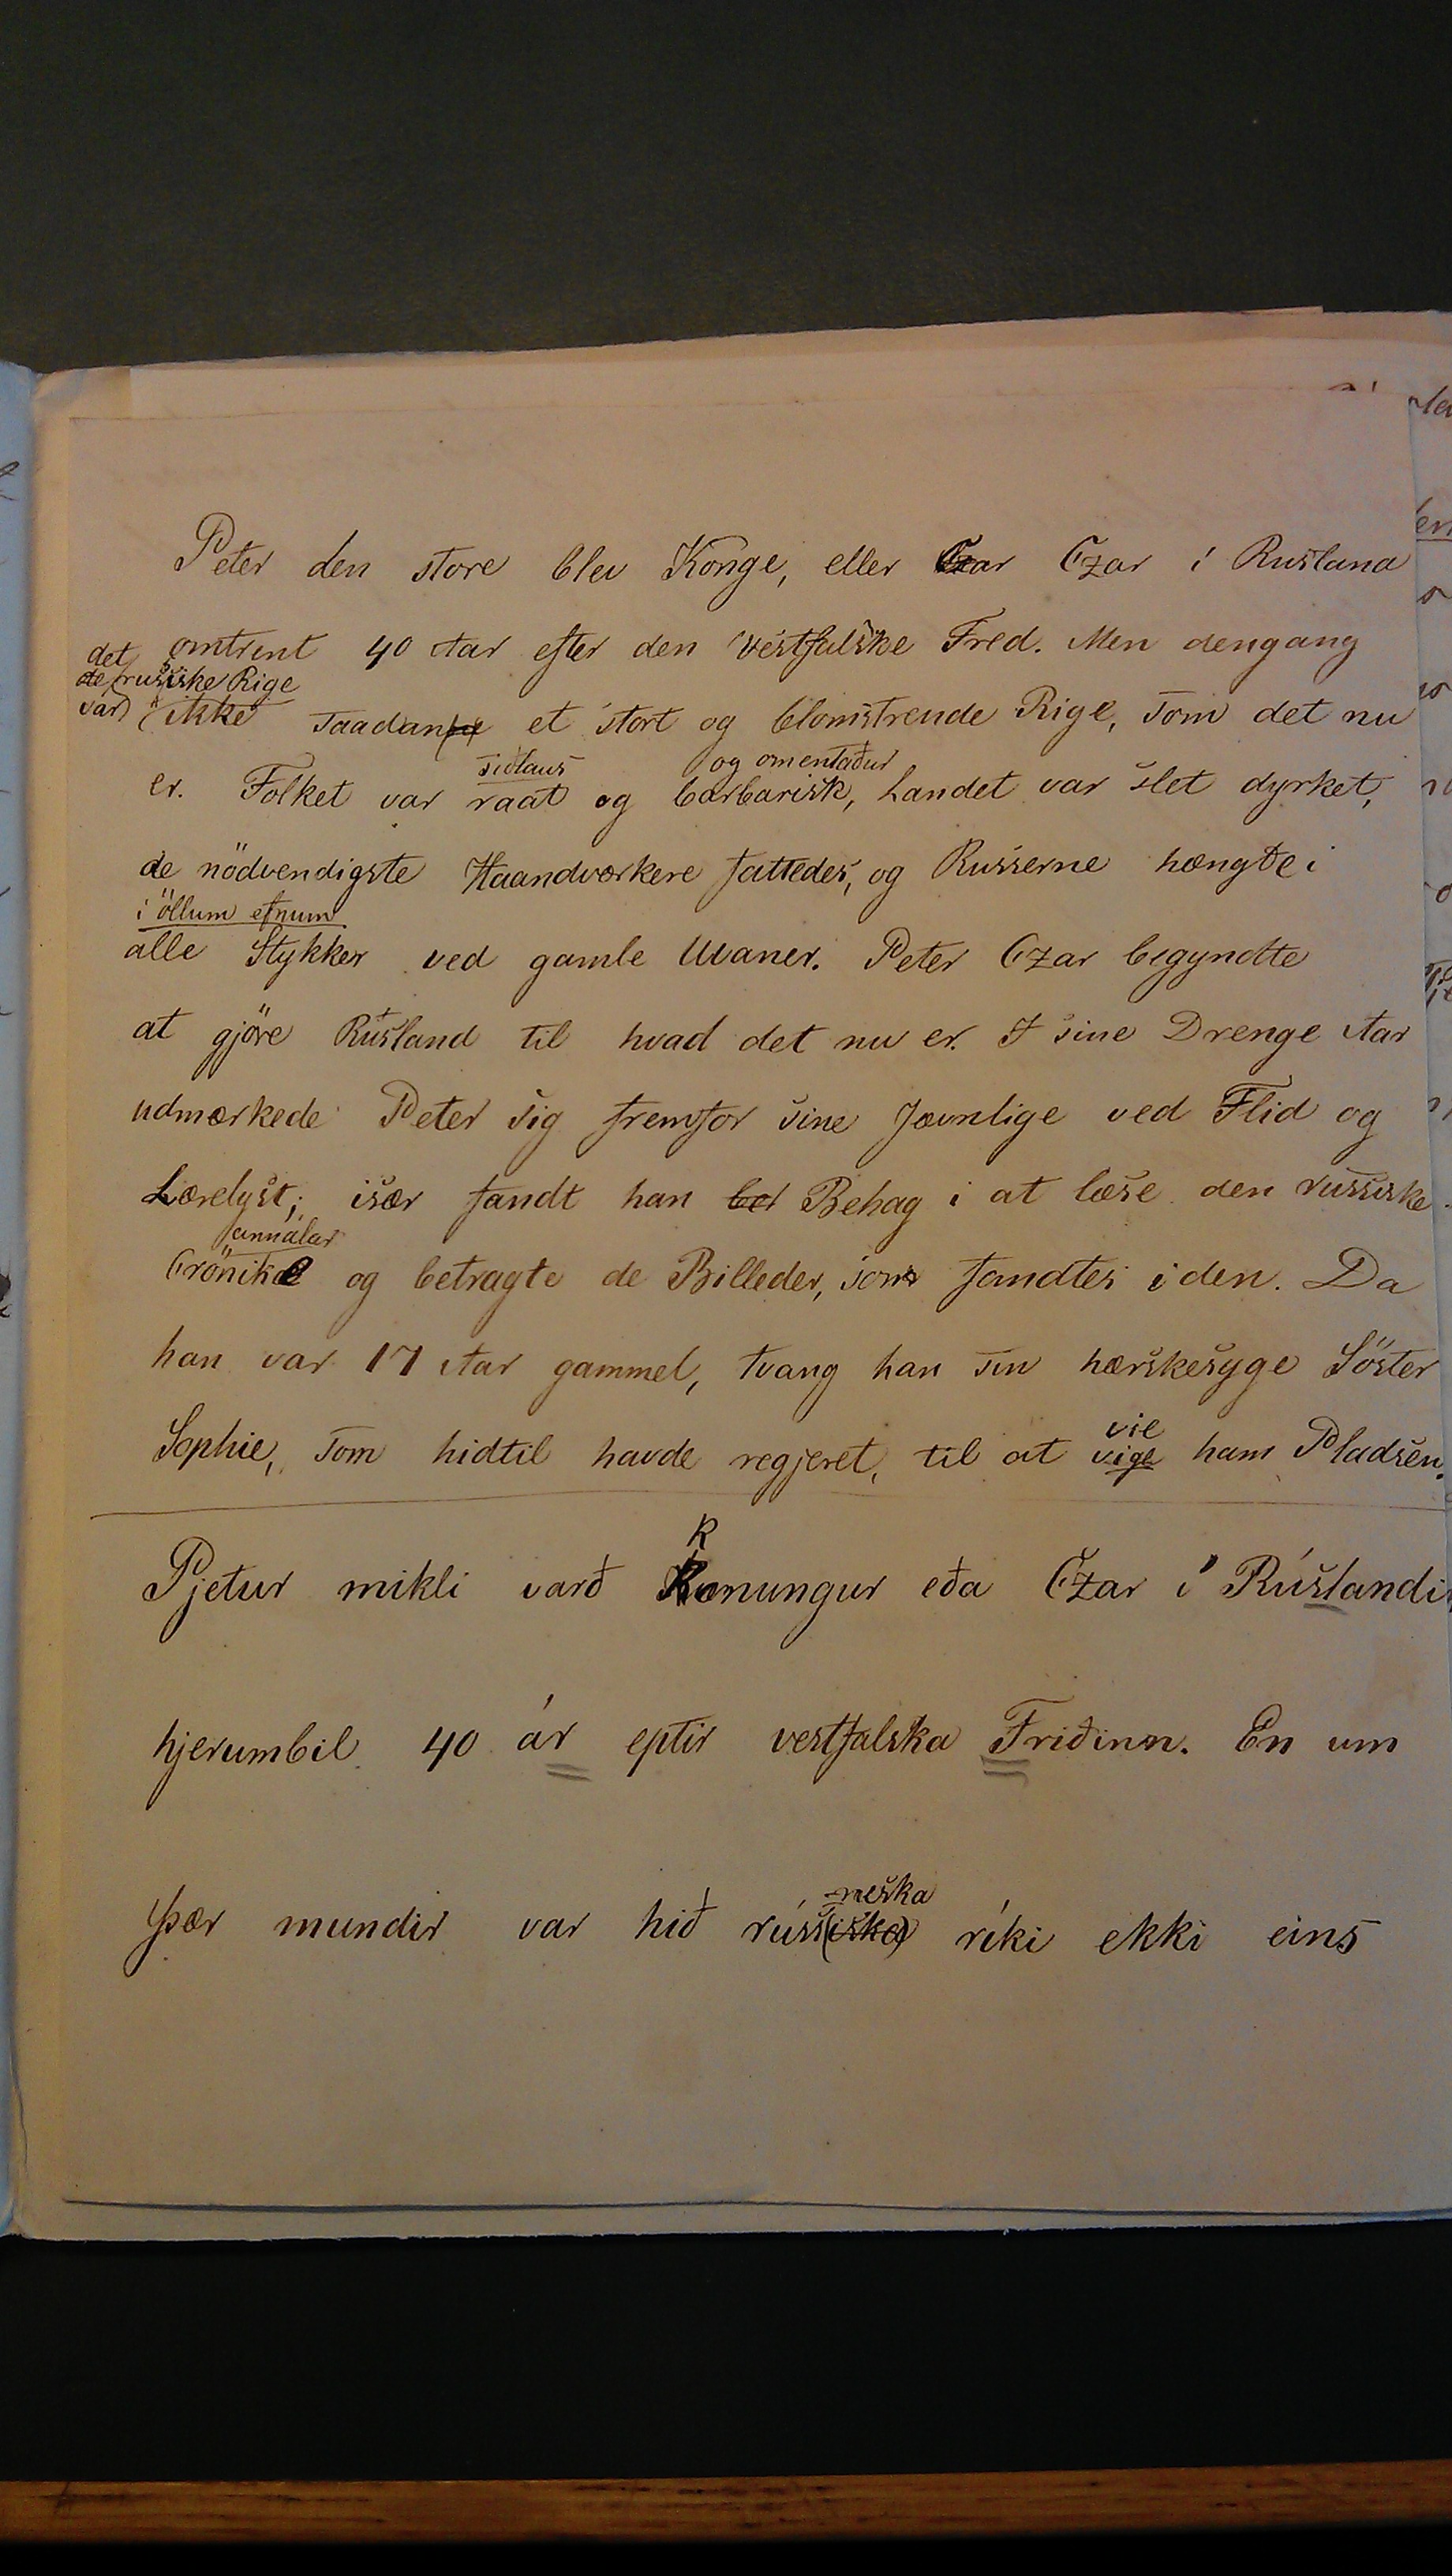 Peter den store blev Konge, eller Czar Czar i Rusland
omtrent 40 Aar efter den vestfalske Fred. Men dengang
det
de russiske Rige
var ikke saadan et stort og blomstrende Rige, som det nu
siðlaus og omentaður
er. Folket var raat og barbarisk, Landet var slet dyrket,
de nödvendigste Haandværkere fattedes, og Russerne hængte i
i öllum efnum
alle Stykker ved gamle Uvaner. Peter Czar begyndte
at gjöre Rusland til hvad det nu er. I sine Drenge Aar
udmærkede Peter sig fremfor sine Jævnlige ved Flid og
Lærelyst; især fandt han bet Behag i at læse den russiske
annálar
Crönike og betragte de Billeder, som fandtes i den. Da
han var 17 Aar gammel, tvang han sin hærskesyge Söster
vie
Sophie, som hidtil havde regjeret, til at vige ham Pladsen.
K
Pjetur mikli varð Konungur eða Czar í Rúslandi
hjerumbil 40 ár eptir vestfalska Friðinn. En um
neska
þær mundir var hið rúss(iska) ríki ekki eins